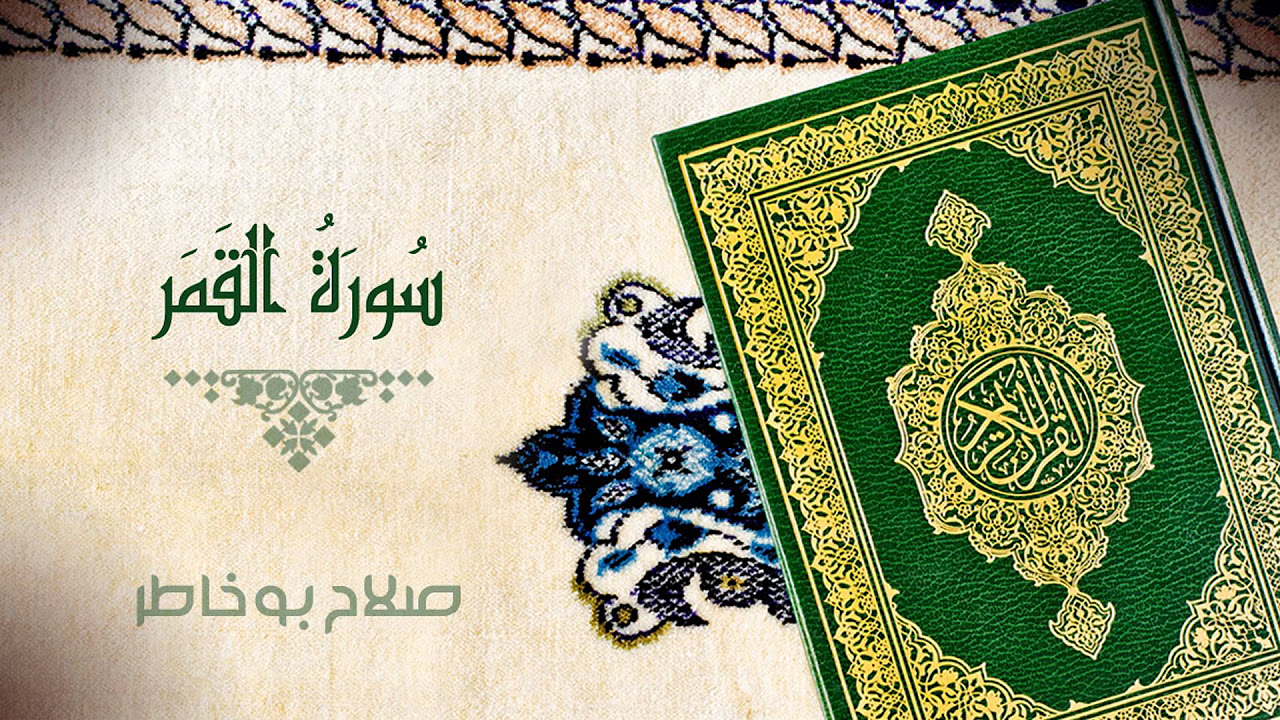 سُورَةُ القَمَر
صلاح بو خاطر
القرآن الكريم